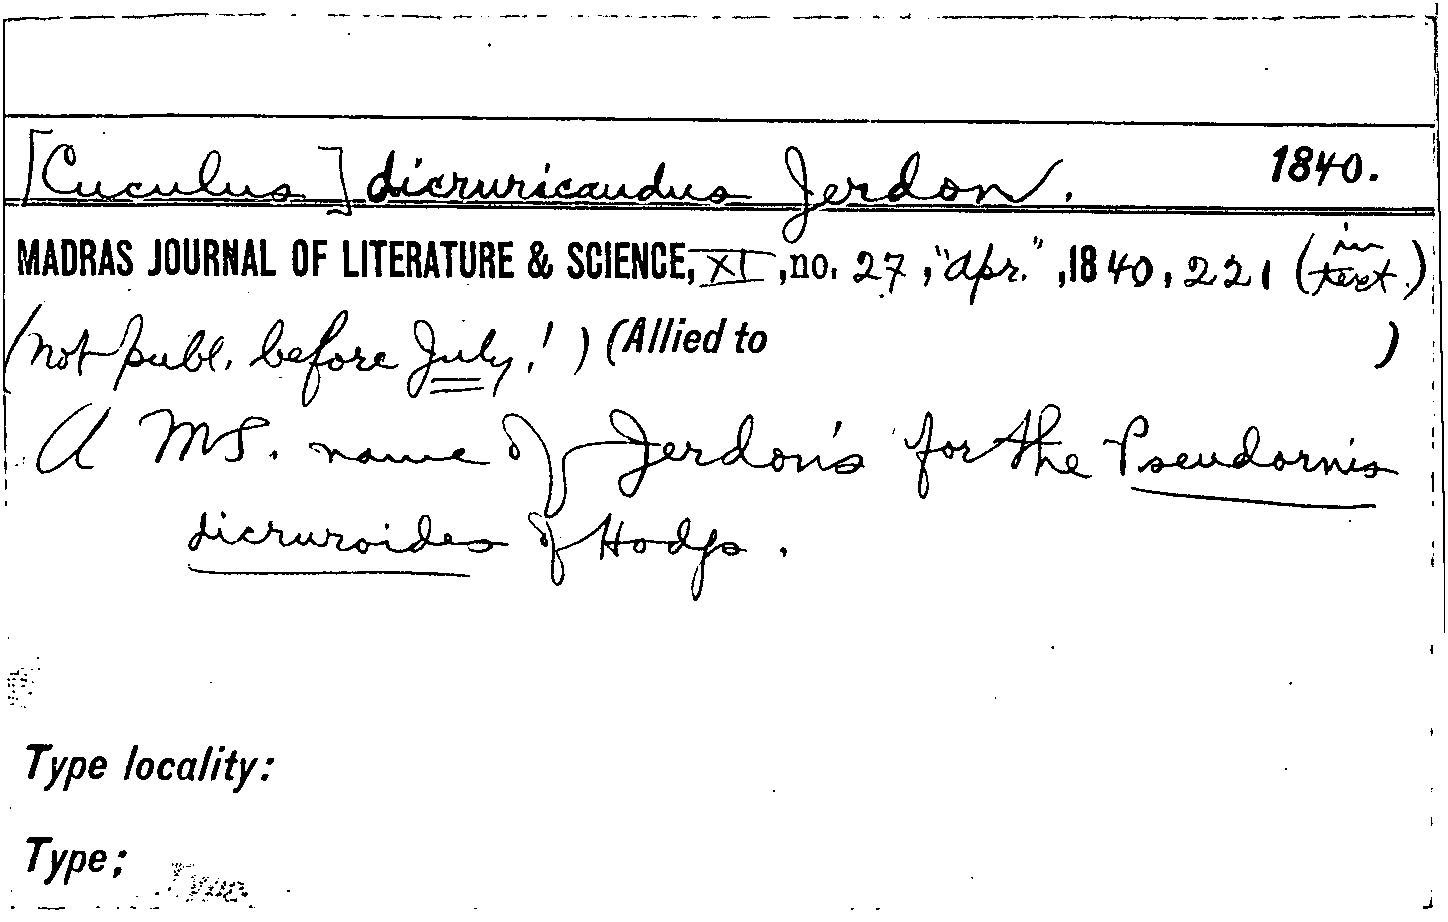 [Cuculus] dicruricaudus Jerdon. 1840.
MADRAS JOURNAL OF LITERATURE & SCIENCE, XI, no. 27, "Apr.", 1840, 221 (in text.)
(not publ. before July!) (Allied to )
A MS. name of Jerdon's for the Pseudornis
dicruroides of Hodgs.
Type locality:
Type;